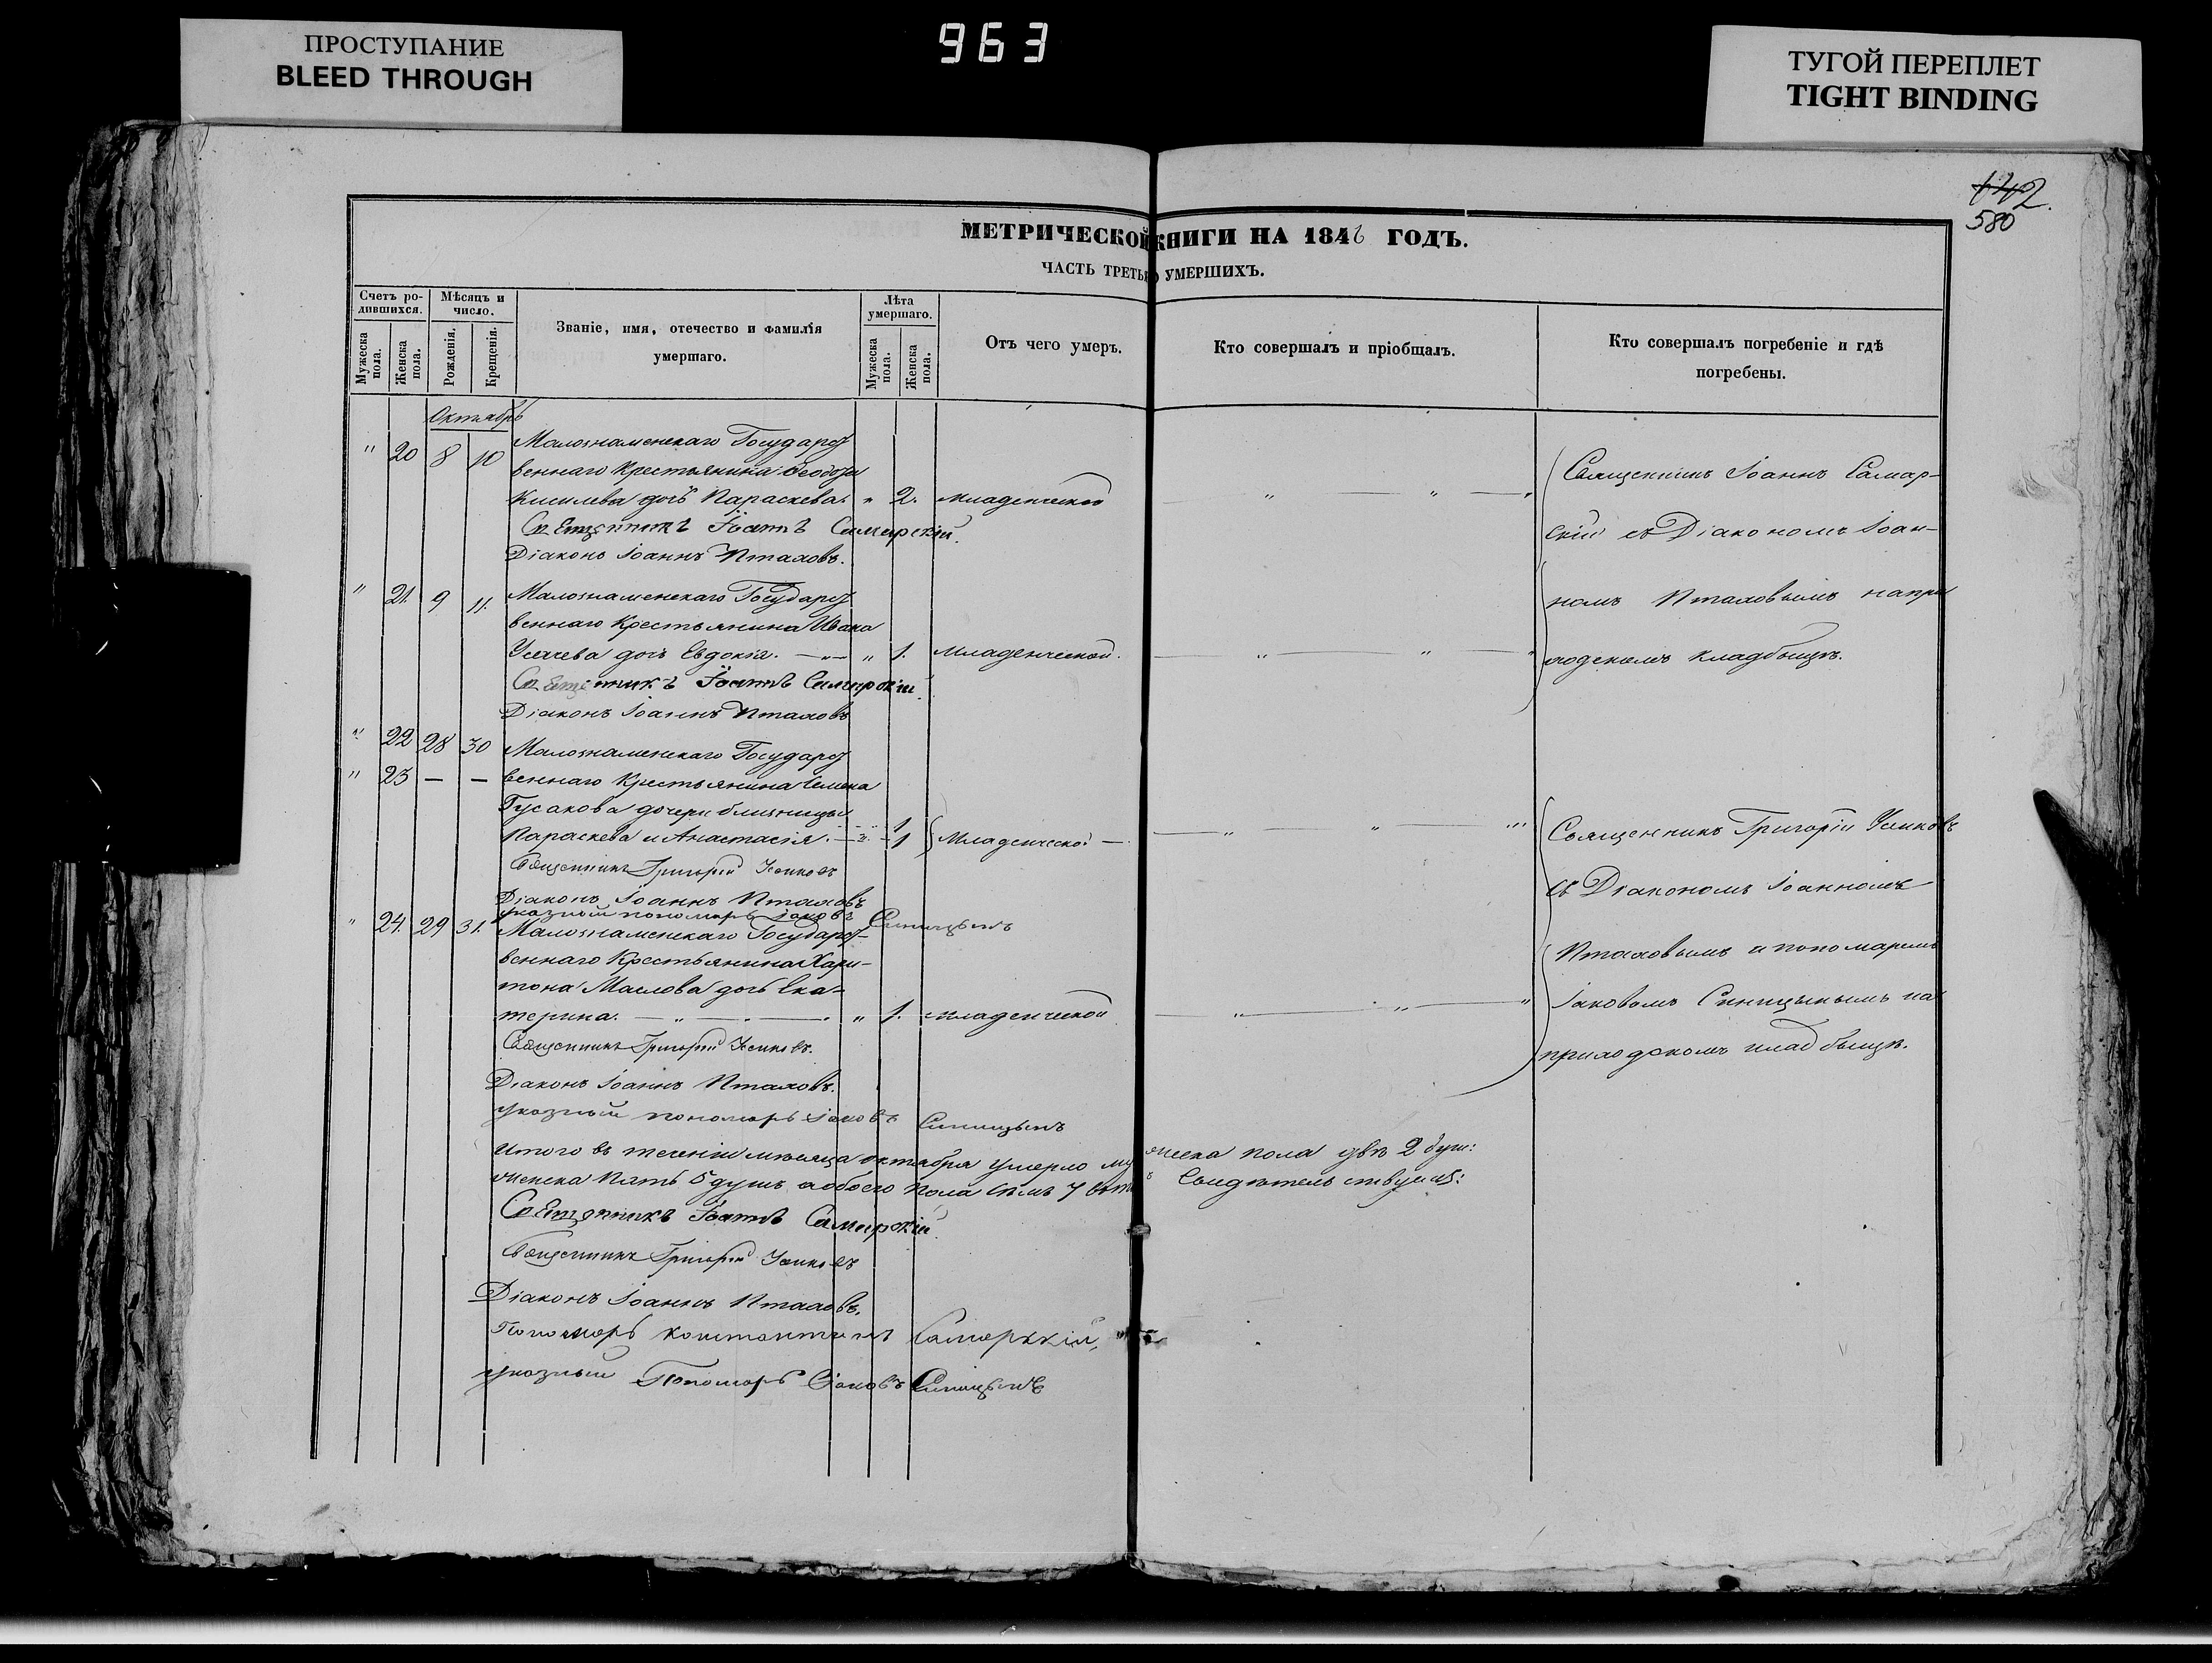 ПРОСТУПАНИЕ
BLEED THROUGH
963
ТУГОЙ ПЕРЕПЛЕТ
TIGHT BINDING
142.
580
МЕТРИЧЕСКОЙ КНИГИ НА 1846 ГОДЪ.
ЧАСТЬ ТРЕТЬЯ О УМЕРШИХЪ.
Счетъ ро-
дившихся.
Мужеска пола.
Женска пола.
Мѣсяцъ и
число.
Рожденія.
Крещенія.
Званіе, имя, отечество и фамилія
умершаго.
Лѣта
умершаго.
Мужеска пола.
Женска пола.
Отъ чего умеръ.
Кто совершалъ и пріобщалъ.
Кто совершалъ погребеніе и гдѣ
погребены.
Октябрь
" 20 8 10 Малознаменскаго Государст
веннаго Крестьянина
Киселева дочь Параскева. " 2. младенческой
Священникъ Іоаннъ Самарскій.
Діаконъ Іоаннъ Пталовъ.
Священникъ Іоаннъ Самар-
скій съ Діакономъ Іоан-
номъ Пталовымъ на при
ходскомъ кладбищѣ.
" 21. 9 11. Малознаменскаго Государст
веннаго Крестьянина Ивана
Усачева дочь Евдокія. " 1. младенческой.
Священникъ Іоаннъ Самарскій.
Діаконъ Іоаннъ Пталовъ
" 22 28 30 Малознаменскаго Государст
" 23 — — веннаго Крестьянина Семена
Гусакова дочери близницы
Параскева и Анастасія. 1 1 Младенческой
Священникъ Григорій Усиковъ
Діаконъ Іоаннъ Пталовъ
указный пономарь Іаковъ Синицынъ
Священникъ Григорій Усиковъ
съ Діакономъ Іоанномъ
Пталовымъ и пономаремъ
Іаковомъ Синицынымъ на
приходскомъ кладбищѣ.
" 24. 29 31. Малознаменскаго Государст-
веннаго Крестьянина Хари-
тона Маслова дочь Ека-
терина. " 1. младенческой
Священникъ Григорій Усиковъ.
Діаконъ Іоаннъ Пталовъ.
указный пономарь Іаковъ Синицынъ
Итого въ теченіи мѣсяца октября умерло мужеска пола двѣ 2 душ:
женска пять 5 душъ а обоего пола семь 7 Свидѣтельствуемъ:
Священникъ Іоаннъ Самарскій.
Священникъ Григорій Усиковъ
Діаконъ Іоаннъ Пталовъ.
Пономарь Константинъ Самарскій,
указный Пономарь Іаковъ Синицынъ